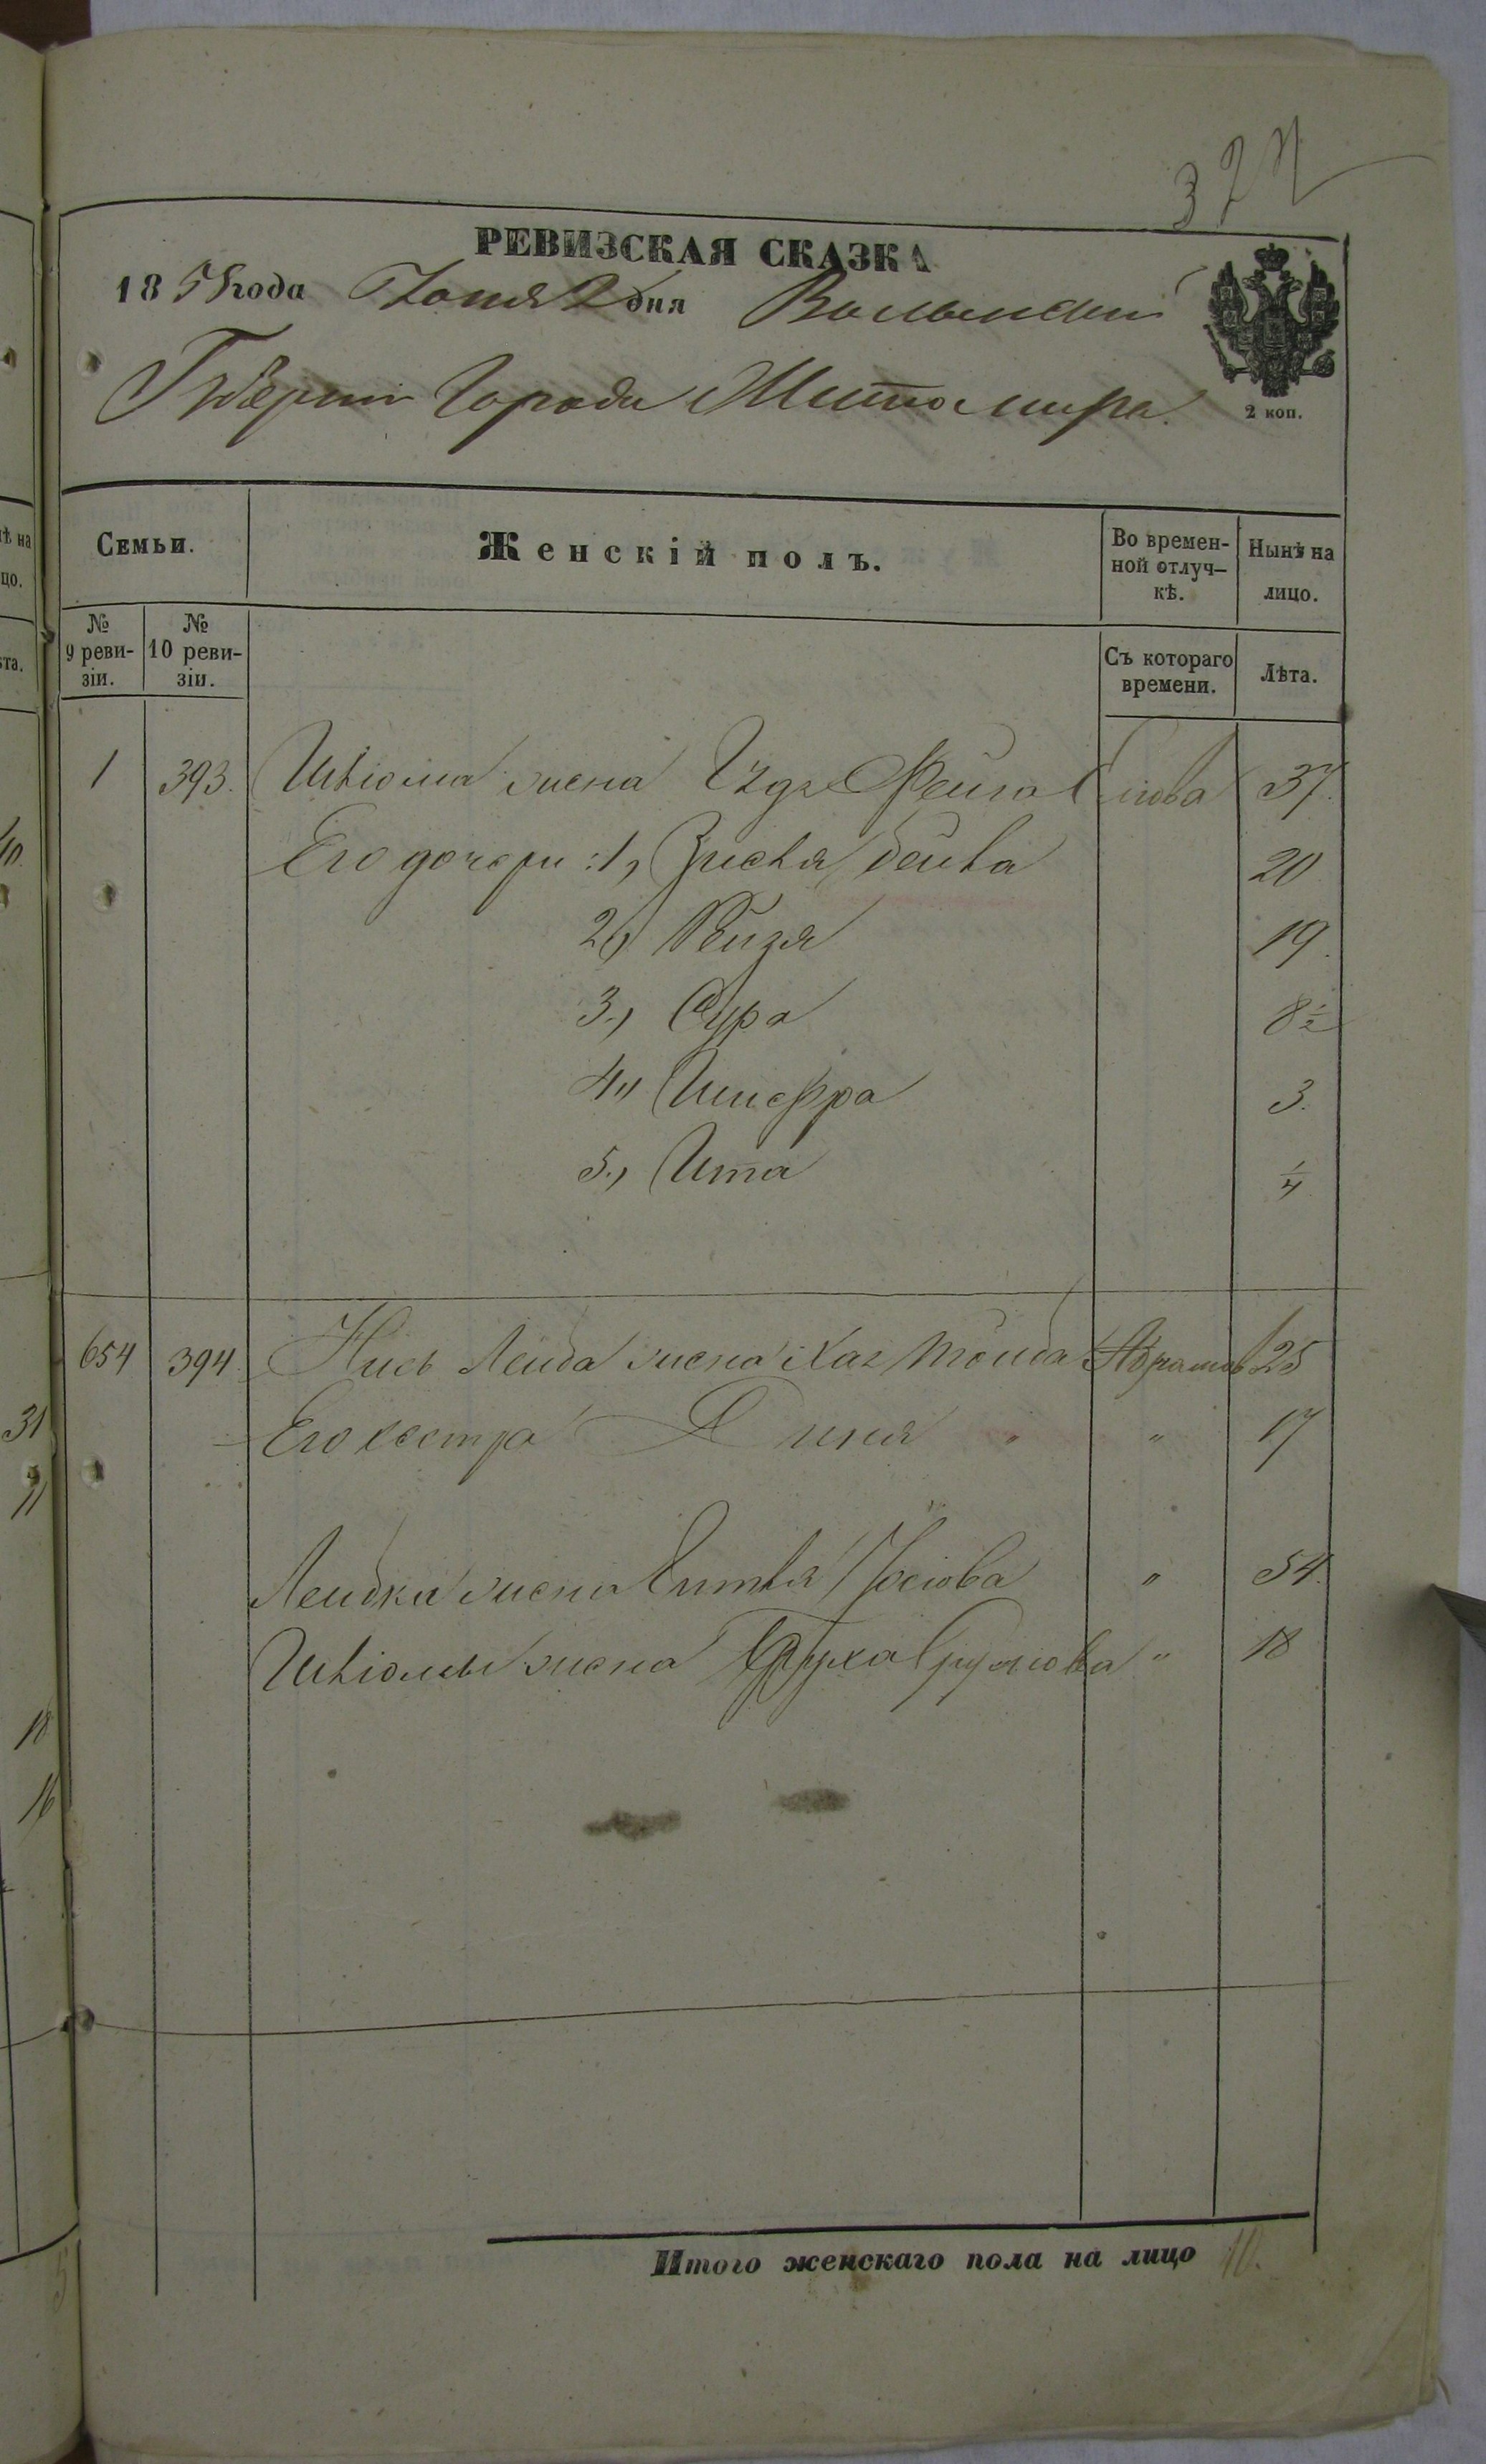 327
РЕВИЗСКАЯ СКАЗКА
1858 года Іюня 2 дня Волынской
Губерніи Города Житомира
2 коп.
Семьи.
Женскій полъ.
Во времен-
ной отлуч-
кѣ.
Нынѣ на
лицо.
№
9 реви-
зіи.
№
10 реви-
зіи.
Съ котораго
времени.
Лѣта.
1 393. жена Фейга 37.
Его дочери: 1, Зисля Бейла 20
2, Рейзя 19.
3, Сура 8½
4, Шифра 3.
5, Ита ¼
654 394 Лейба жена Хая Тойба Абрамов 25
Его сестра Диня " " 17
Лейбки жена Іосіова " 54.
жена Бруха " 18
Итого женскаго пола на лицо 10.